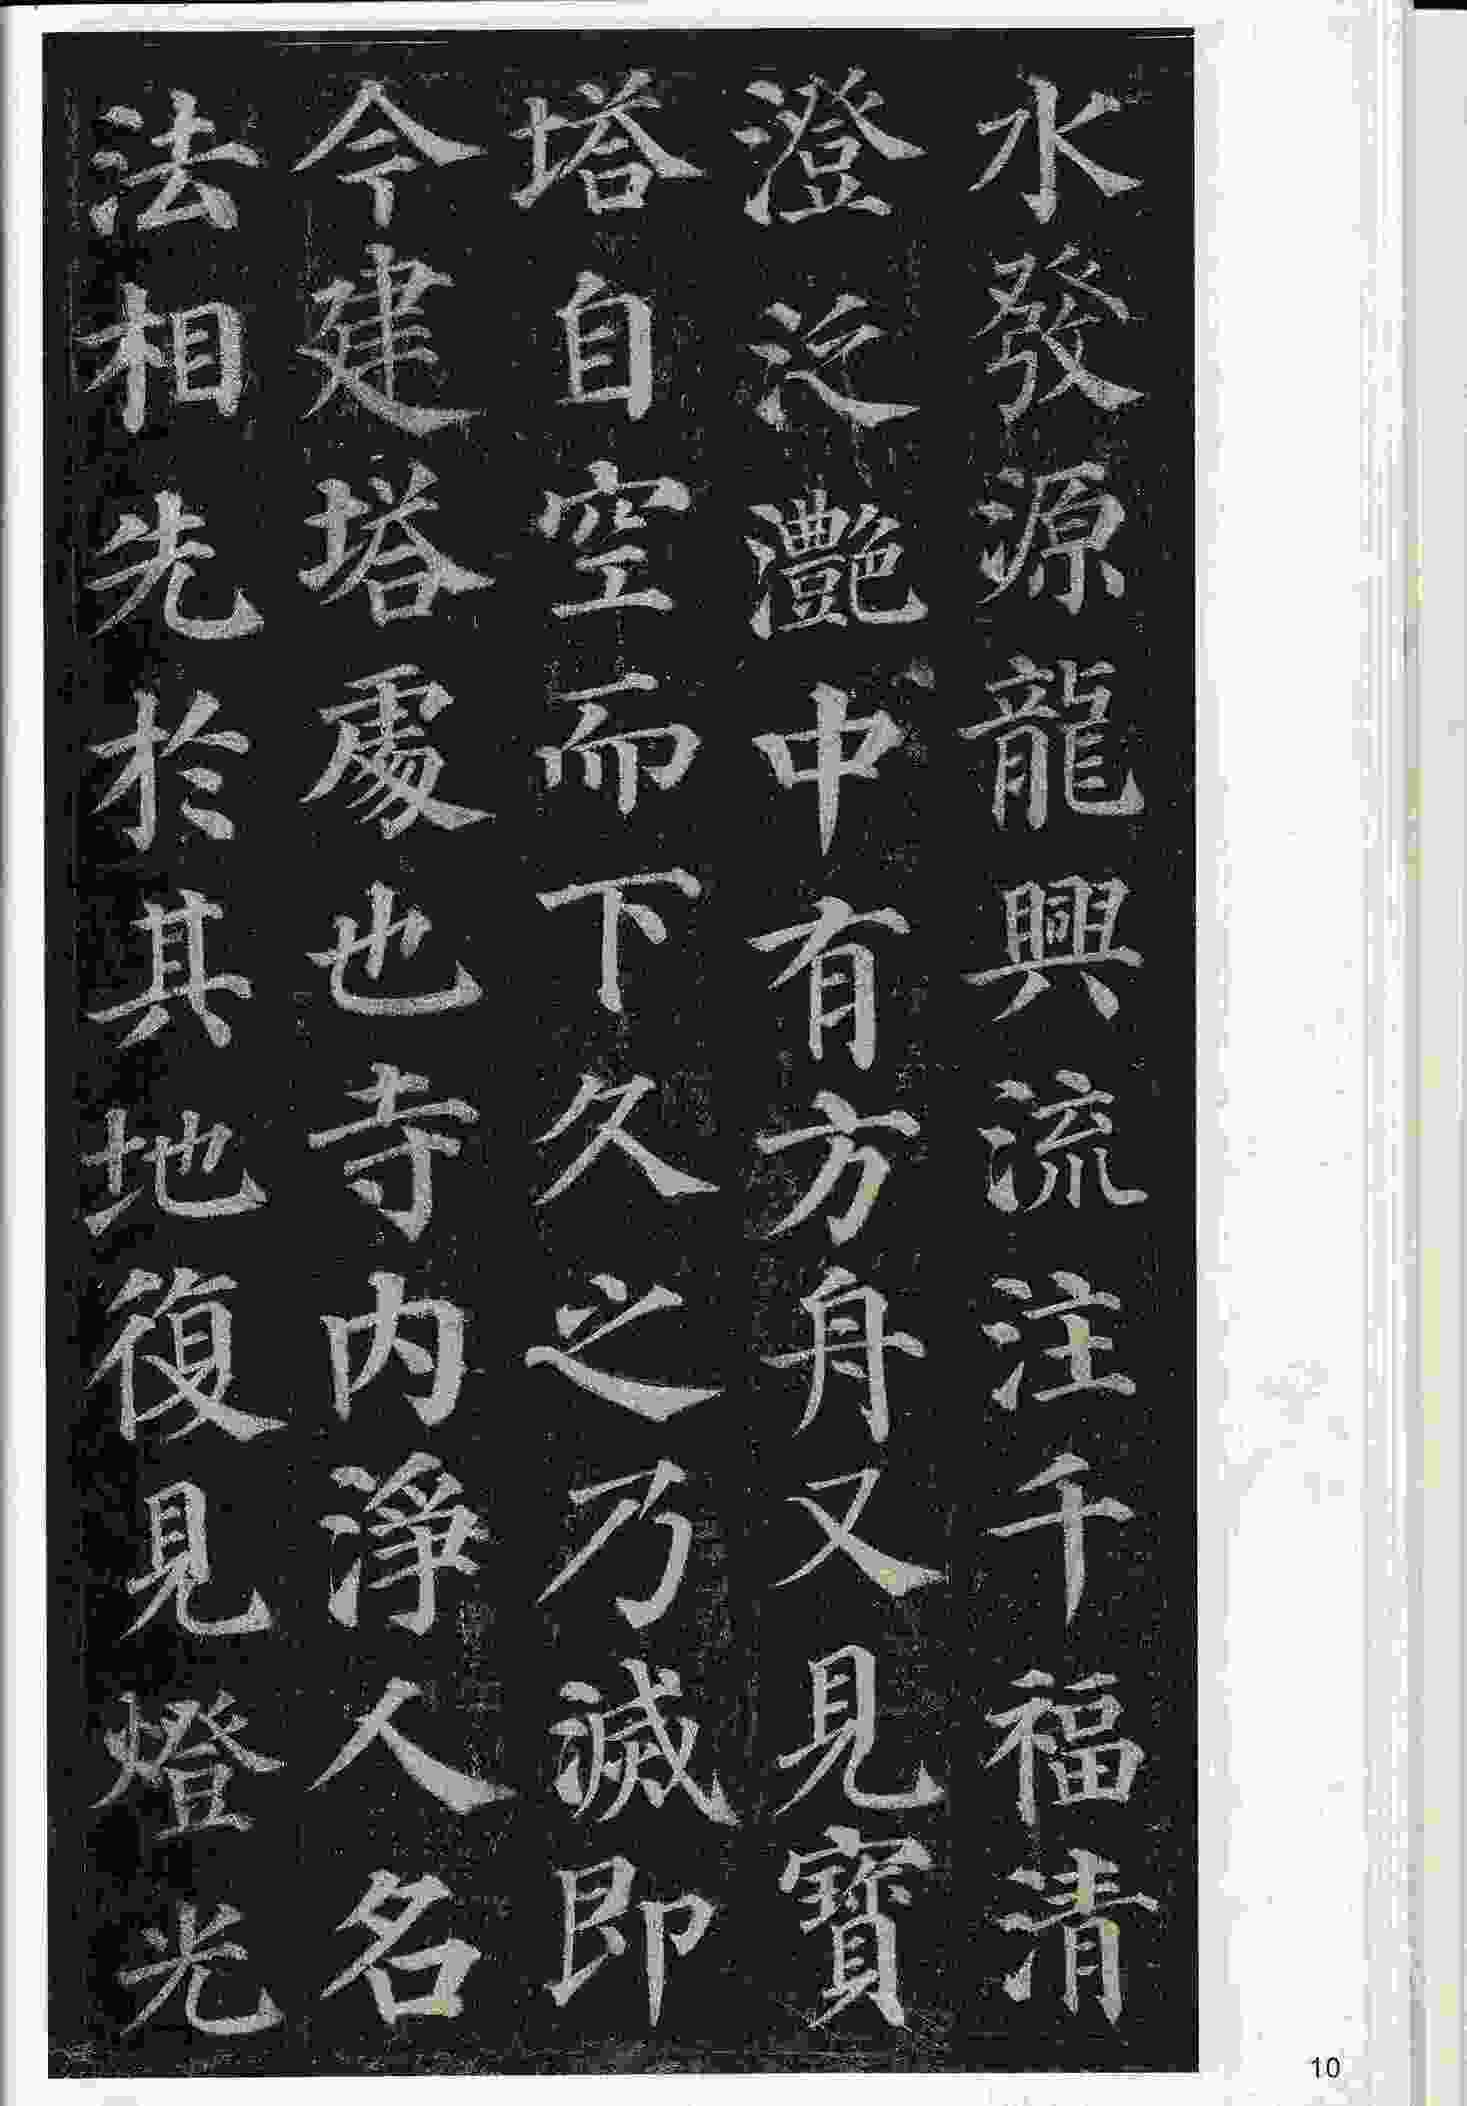 水發源龍興流注千福清
澄泛灔中有方舟又見寶
塔自空而下久之乃滅即
今建塔處也寺内淨人名
法相先於其地復見燈光
10